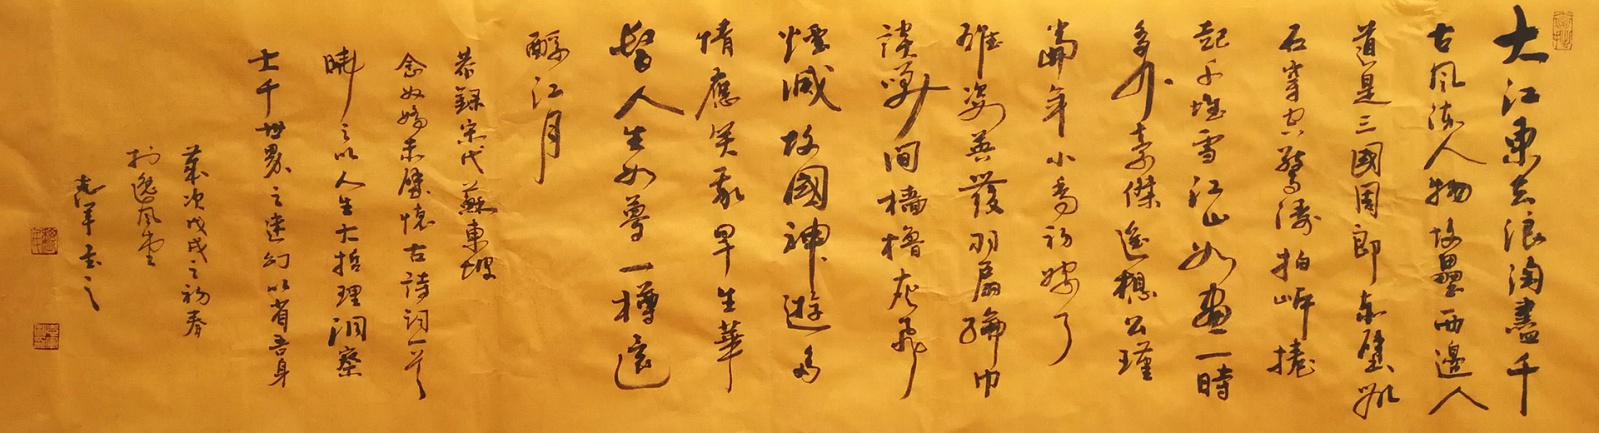 大江東去浪淘盡千
古風流人物故壘西邊人
道是三國周郎赤壁亂
石穿空驚濤拍岸捲
起千堆雪江山如畫一時
多少豪傑遙想公瑾
當年小喬初嫁了
雄姿英發羽扇綸巾
談笑間檣櫓灰飛
煙滅故國神遊多
情應笑我早生華
髮人生如夢一樽還
酹江月
恭録宋代蘇東坡
念奴嬌赤壁懷古詩詞一首
曉之以人生大哲理洞察
大千世界之迷幻以省吾身
歲次戊戌之初春
於逸風堂
書之